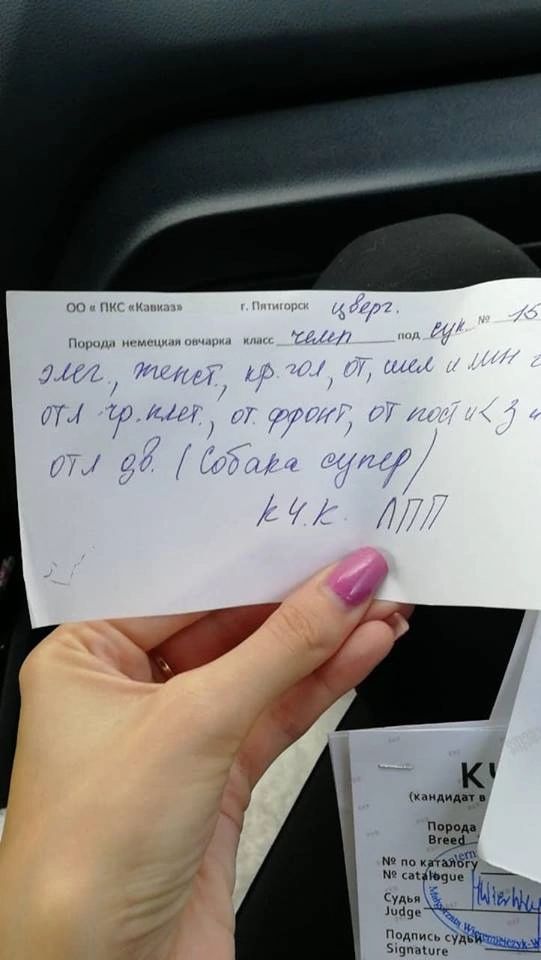 ОО « ПКС «Кавказ» г. Пятигорск цверг.
Порода немецкая овчарка класс чемп под сук. № 15
элег., женст., кр. гол, от, шел и лин
отл гр. клет., от. фронт, от пост и < З
отл дв. (Собака супер)
КЧ.К. ЛПП
КЧ
(кандидат в
Порода
Breed
№ по каталогу
№ catalogue
Судья
Judge
Подпись судьи
Signature